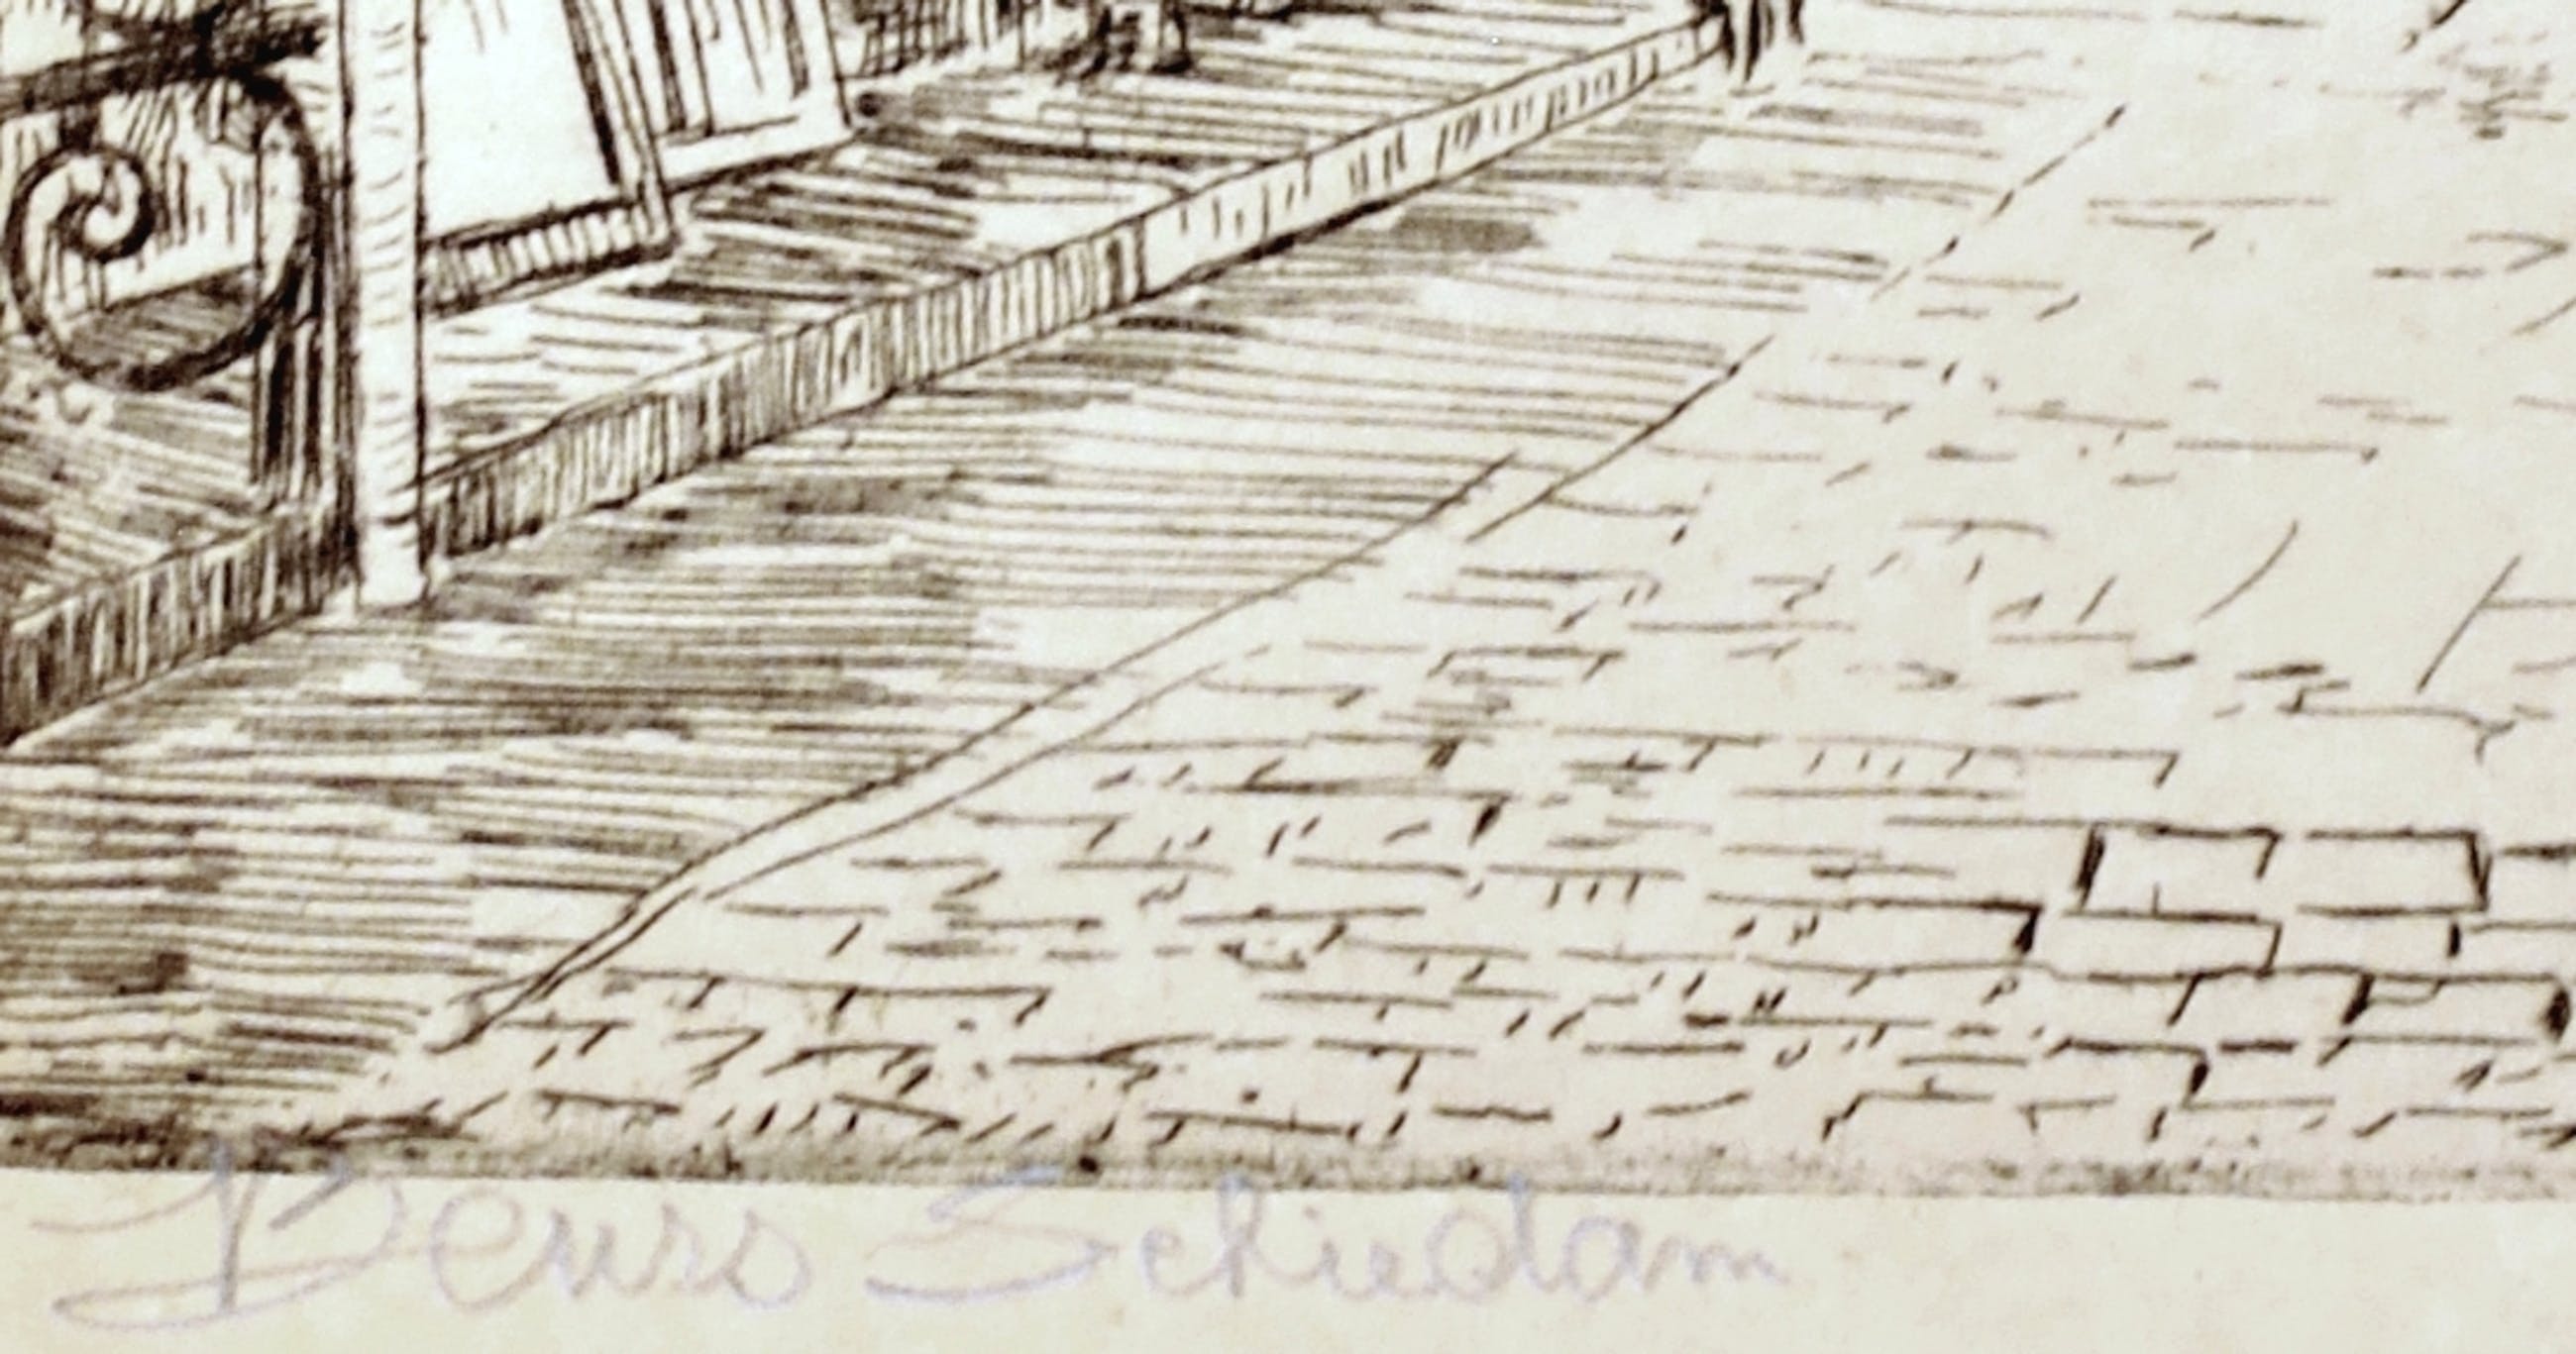 Beurs Schiedam